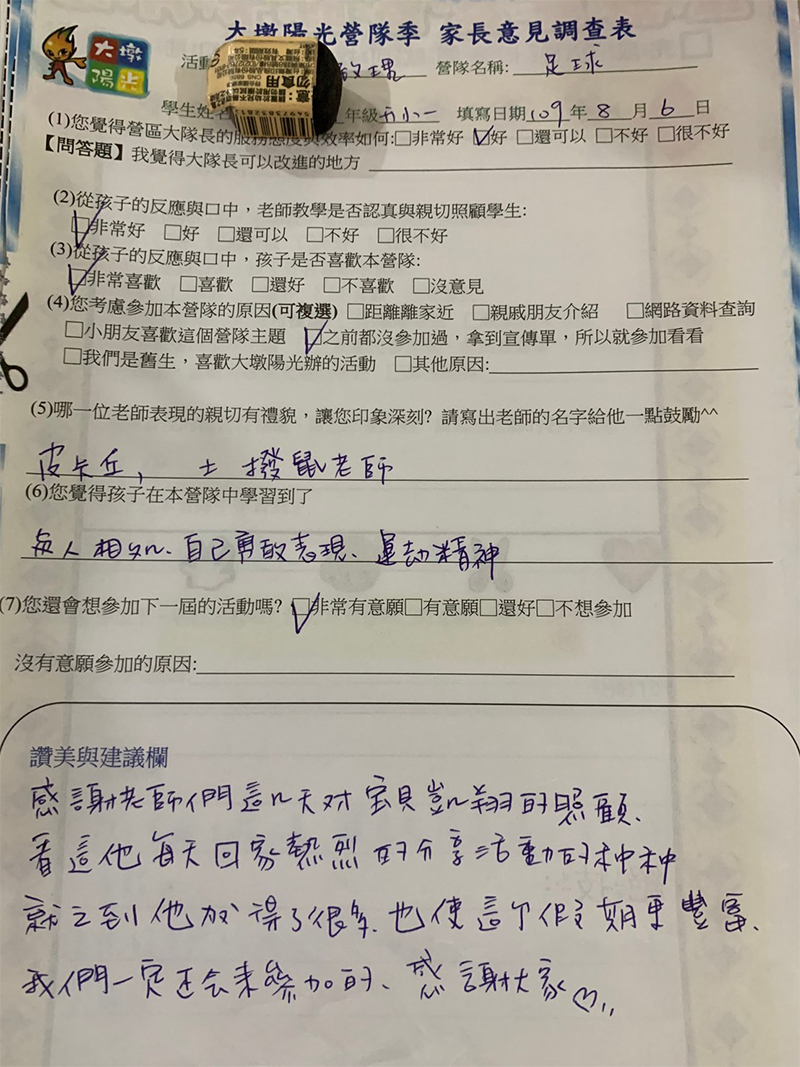 大墩陽光營隊季 家長意見調查表
大墩
陽光
活動 敏 營隊名稱: 足球
勿食用
學生姓名 年級 升小一 填寫日期 109 年 8 月 6 日
(1)您覺得營區大隊長的服務態度與效率如何:□非常好 ☑好 □還可以 □不好 □很不好
【問答題】我覺得大隊長可以改進的地方
(2)從孩子的反應與口中，老師教學是否認真與親切照顧學生:
☑非常好 □好 □還可以 □不好 □很不好
(3)從孩子的反應與口中，孩子是否喜歡本營隊:
☑非常喜歡 □喜歡 □還好 □不喜歡 □沒意見
(4)您考慮參加本營隊的原因(可複選) □距離離家近 □親戚朋友介紹 □網路資料查詢
□小朋友喜歡這個營隊主題 ☑之前都沒參加過，拿到宣傳單，所以就參加看看
□我們是舊生，喜歡大墩陽光辦的活動 □其他原因:
(5)哪一位老師表現的親切有禮貌，讓您印象深刻? 請寫出老師的名字給他一點鼓勵^^
皮卡丘, 土撥鼠老師
(6)您覺得孩子在本營隊中學習到了
与人相処、自己勇敢表現、運动精神
(7)您還會想參加下一屆的活動嗎? ☑非常有意願□有意願□還好□不想參加
沒有意願參加的原因:
讚美與建議欄
感謝老師們這几天对宝貝凱翔的照顧、
看這他每天回家熱烈的分享活動的种种
就知到他收得了很多、也使這个假期更豐富、
我們一定还会来參加的、感謝大家♡,,